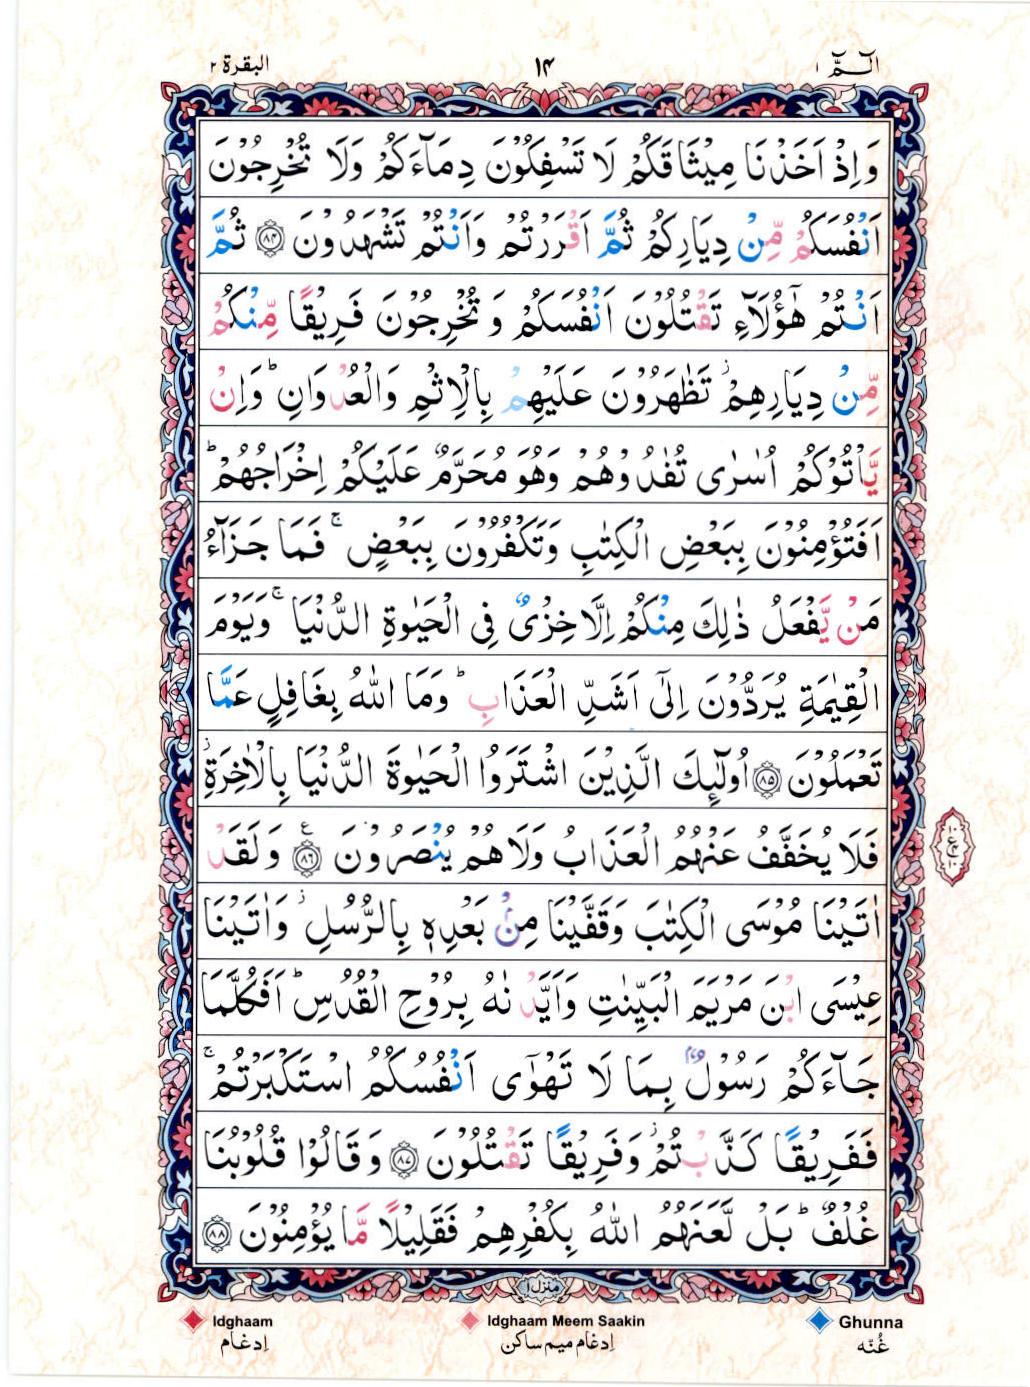 الٓـمّٓ ۱
۱۴
البقرة ۲
وَاِذۡ اَخَذۡنَا مِيۡثَاقَكُمۡ لَا تَسۡفِكُوۡنَ دِمَآءَكُمۡ وَلَا تُخۡرِجُوۡنَ
اَنۡفُسَكُمۡ مِّنۡ دِيَارِكُمۡ ثُمَّ اَقۡرَرۡتُمۡ وَاَنۡتُمۡ تَشۡهَدُوۡنَ ﴿۸۴﴾ ثُمَّ
اَنۡتُمۡ هٰٓؤُلَآءِ تَقۡتُلُوۡنَ اَنۡفُسَكُمۡ وَ تُخۡرِجُوۡنَ فَرِيۡقًا مِّنۡكُمۡ
مِّنۡ دِيَارِهِمۡ ز تَظٰهَرُوۡنَ عَلَيۡهِمۡ بِالۡاِثۡمِ وَالۡعُدۡوَانِ ؕ وَاِنۡ
يَّاۡتُوۡكُمۡ اُسٰرٰى تُفٰدُوۡهُمۡ وَهُوَ مُحَرَّمٌ عَلَيۡكُمۡ اِخۡرَاجُهُمۡ ؕ
اَفَتُؤۡمِنُوۡنَ بِبَعۡضِ الۡكِتٰبِ وَتَكۡفُرُوۡنَ بِبَعۡضٍ ۚ فَمَا جَزَآءُ
مَنۡ يَّفۡعَلُ ذٰلِكَ مِنۡكُمۡ اِلَّا خِزۡىٌ فِى الۡحَيٰوةِ الدُّنۡيَا ۚ وَيَوۡمَ
الۡقِيٰمَةِ يُرَدُّوۡنَ اِلٰٓى اَشَدِّ الۡعَذَابِ ؕ وَمَا اللّٰهُ بِغَافِلٍ عَمَّا
تَعۡمَلُوۡنَ ﴿۸۵﴾ اُولٰٓئِكَ الَّذِيۡنَ اشۡتَرَوُا الۡحَيٰوةَ الدُّنۡيَا بِالۡاٰخِرَةِ ز
فَلَا يُخَفَّفُ عَنۡهُمُ الۡعَذَابُ وَلَا هُمۡ يُنۡصَرُوۡنَ ﴿۸۶﴾ ع وَلَقَدۡ
اٰتَيۡنَا مُوۡسَى الۡكِتٰبَ وَقَفَّيۡنَا مِنۡۢ بَعۡدِهٖ بِالرُّسُلِ ز وَاٰتَيۡنَا
عِيۡسَى ابۡنَ مَرۡيَمَ الۡبَيِّنٰتِ وَاَيَّدۡنٰهُ بِرُوۡحِ الۡقُدُسِ ؕ اَفَكُلَّمَا
جَآءَكُمۡ رَسُوۡلٌۢ بِمَا لَا تَهۡوٰٓى اَنۡفُسُكُمُ اسۡتَكۡبَرۡتُمۡ ۚ
فَفَرِيۡقًا كَذَّبۡتُمۡ ز وَفَرِيۡقًا تَقۡتُلُوۡنَ ﴿۸۷﴾ وَقَالُوۡا قُلُوۡبُنَا
غُلۡفٌ ؕ بَلۡ لَّعَنَهُمُ اللّٰهُ بِكُفۡرِهِمۡ فَقَلِيۡلًا مَّا يُؤۡمِنُوۡنَ ﴿۸۸﴾
منزل ۱
Idghaam
ادغام
Idghaam Meem Saakin
ادغام میم ساکن
Ghunna
غُنّه